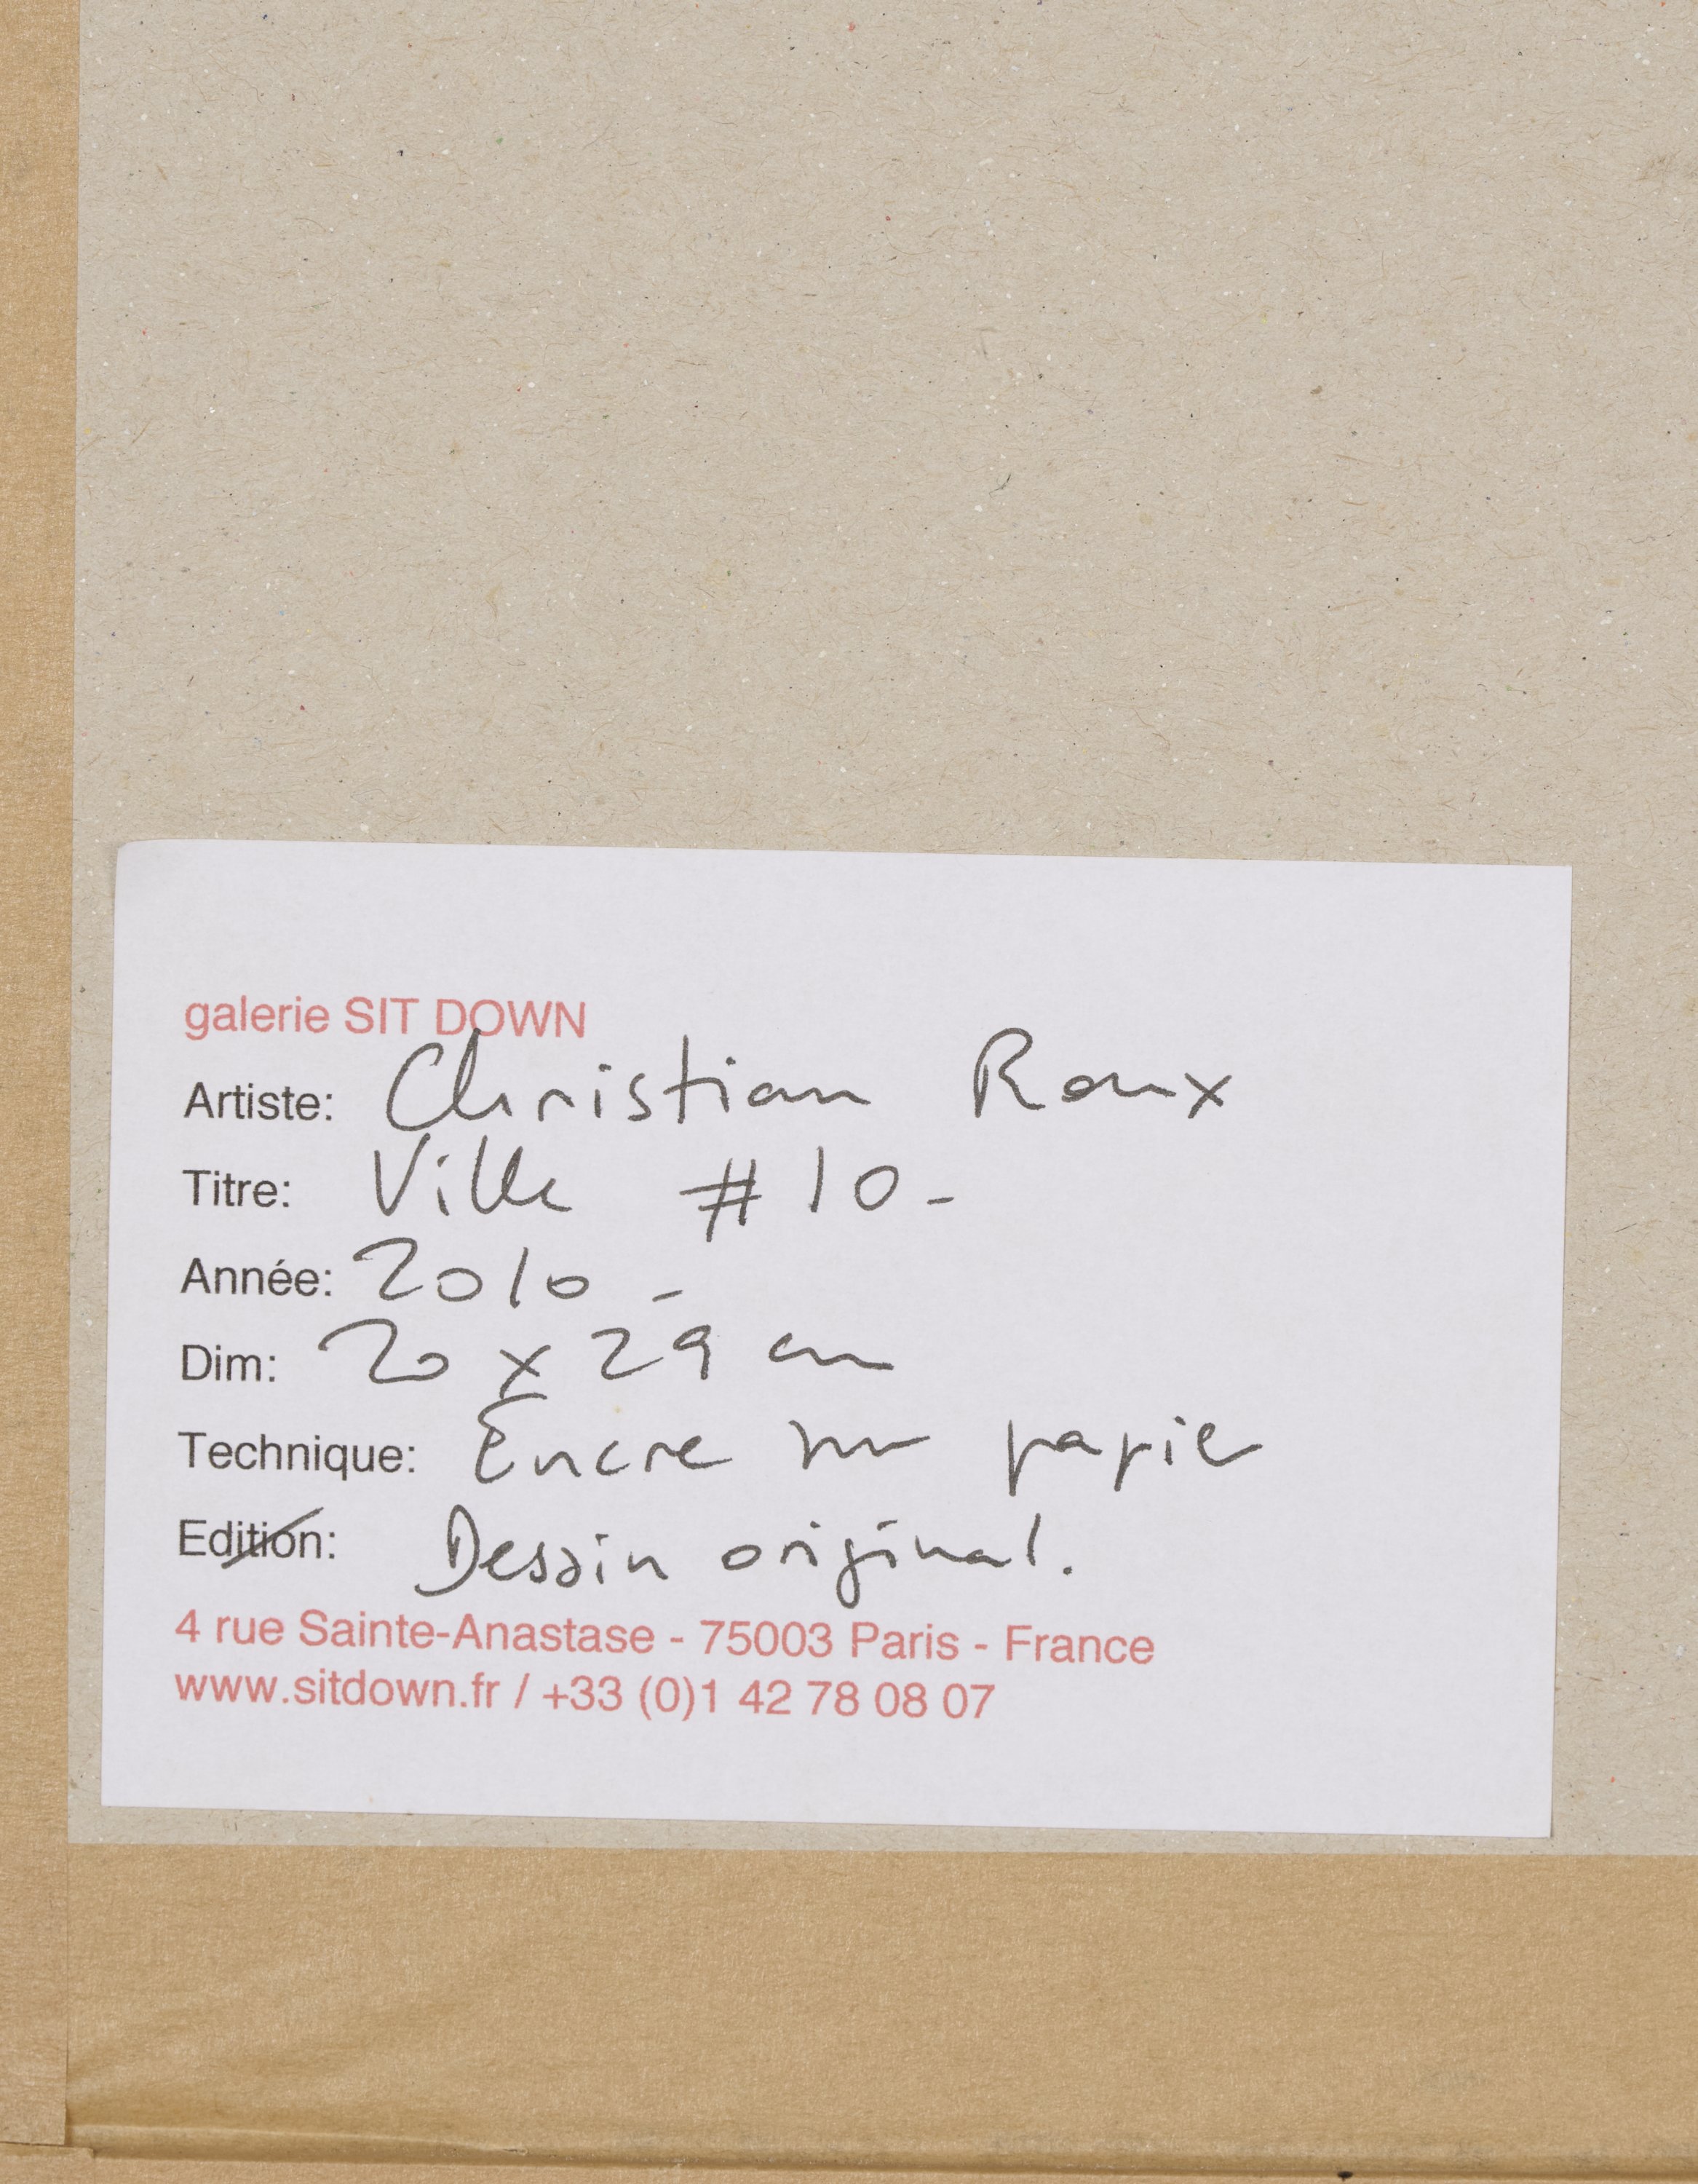 galerie SIT DOWN
Artiste: Christian Roux
Titre: Ville #10-
Année: 2010-
Dim: 20 x 29 cm
Technique: Encre sur papier
Edition: Dessin original.
4 rue Sainte-Anastase - 75003 Paris - France
www.sitdown.fr / +33 (0)1 42 78 08 07